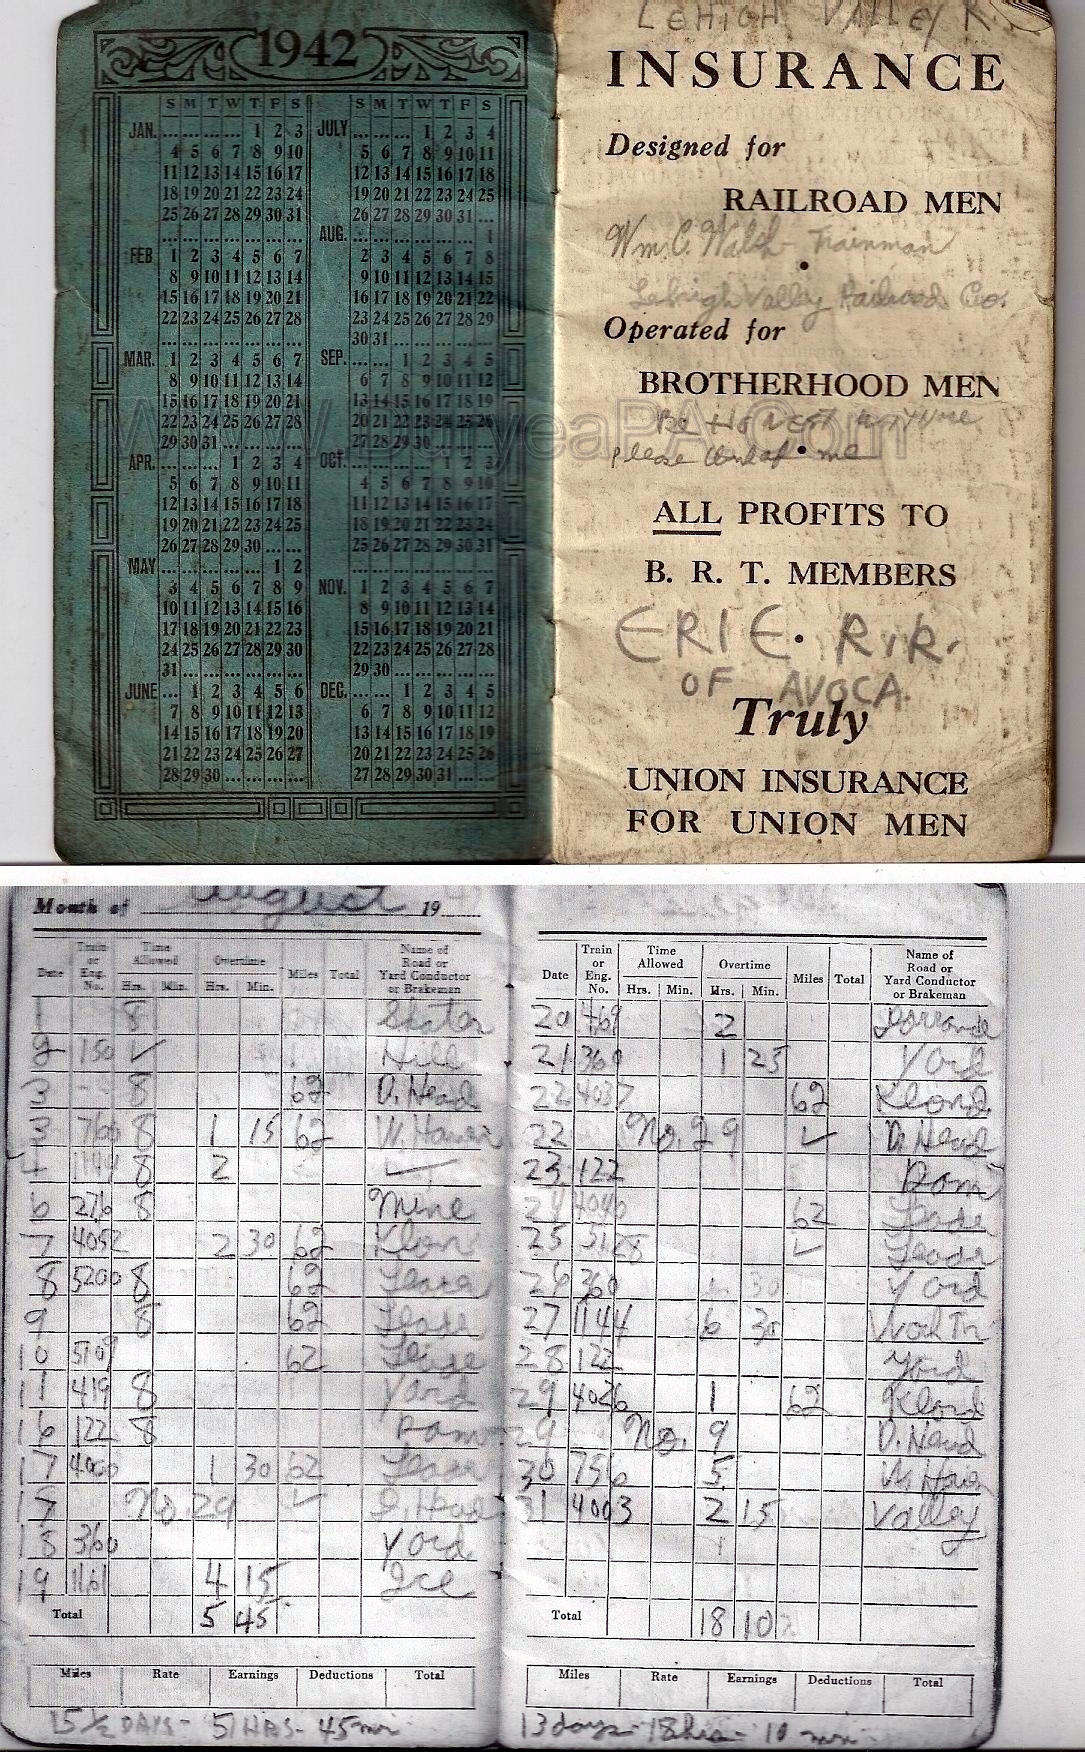 1942
S M T W T F S
JAN. ... ... ... ... 1 2 3
4 5 6 7 8 9 10
11 12 13 14 15 16 17
18 19 20 21 22 23 24
25 26 27 28 29 30 31
FEB. 1 2 3 4 5 6 7
8 9 10 11 12 13 14
15 16 17 18 19 20 21
22 23 24 25 26 27 28
MAR. 1 2 3 4 5 6 7
8 9 10 11 12 13 14
15 16 17 18 19 20 21
22 23 24 25 26 27 28
29 30 31
APR. ... ... ... 1 2 3 4
5 6 7 8 9 10 11
12 13 14 15 16 17 18
19 20 21 22 23 24 25
26 27 28 29 30 ... ...
MAY ... ... ... ... ... 1 2
3 4 5 6 7 8 9
10 11 12 13 14 15 16
17 18 19 20 21 22 23
24 25 26 27 28 29 30
31
JUNE ... 1 2 3 4 5 6
7 8 9 10 11 12 13
14 15 16 17 18 19 20
21 22 23 24 25 26 27
28 29 30 ... ... ... ...
S M T W T F S
JULY ... ... ... 1 2 3 4
5 6 7 8 9 10 11
12 13 14 15 16 17 18
19 20 21 22 23 24 25
26 27 28 29 30 31 ...
AUG. ... ... ... ... ... ... 1
2 3 4 5 6 7 8
9 10 11 12 13 14 15
16 17 18 19 20 21 22
23 24 25 26 27 28 29
30 31
SEP. ... ... 1 2 3 4 5
6 7 8 9 10 11 12
13 14 15 16 17 18 19
20 21 22 23 24 25 26
27 28 29 30
OCT. ... ... ... ... 1 2 3
4 5 6 7 8 9 10
11 12 13 14 15 16 17
18 19 20 21 22 23 24
25 26 27 28 29 30 31
NOV. 1 2 3 4 5 6 7
8 9 10 11 12 13 14
15 16 17 18 19 20 21
22 23 24 25 26 27 28
29 30
DEC. ... ... 1 2 3 4 5
6 7 8 9 10 11 12
13 14 15 16 17 18 19
20 21 22 23 24 25 26
27 28 29 30 31 ... ...
www.DuryeaPA.com
LEHIGH VALLEY R.
INSURANCE
Designed for
RAILROAD MEN
Wm. C. Walsh - Trainman
Lehigh Valley Railroad Co.
Operated for
BROTHERHOOD MEN
Be Honest
please me
ALL PROFITS TO
B. R. T. MEMBERS
ERIE R.R.
OF AVOCA
Truly
UNION INSURANCE
FOR UNION MEN
Month of August 19
Date Train or Eng. No. Time Allowed Hrs. Min. Overtime Hrs. Min. Miles Total Name of Road or Yard Conductor or Brakeman
1 8
2 150 ✓ Hill
3 8 62 D. Head
3 760 8 1 15 62
4 1144 8 2 ✓
6 276 8 Mine
7 4052 2 30 62 Klon
8 5200 8 62
9 8 62
10 5109 62
11 419 8 Yard
16 122 8 Dam
17 1 30 62
No. 29 ✓ D. Head
18 360 Yard
19 1161 4 15 Ice
Total 5 45
Miles Rate Earnings Deductions Total
15 1/2 DAYS - 51 HRS - 45 min
Date Train or Eng. No. Time Allowed Hrs. Min. Overtime Hrs. Min. Miles Total Name of Road or Yard Conductor or Brakeman
20 469 2
21 360 1 25 Yard
22 4037 62 Klond.
22 No. 29 9 ✓ D. Head
23 122 Dam
24 4040 62
25 5128 ✓
26 360 30 Yard
27 1144 6 30 Work Tn
28 122 Yard
29 4026 1 62 Klond
29 No. 9 D. Head
30 756 5
31 4003 2 15 Valley
Total 18 10
Miles Rate Earnings Deductions Total
13 days - 18 hrs - 10 min